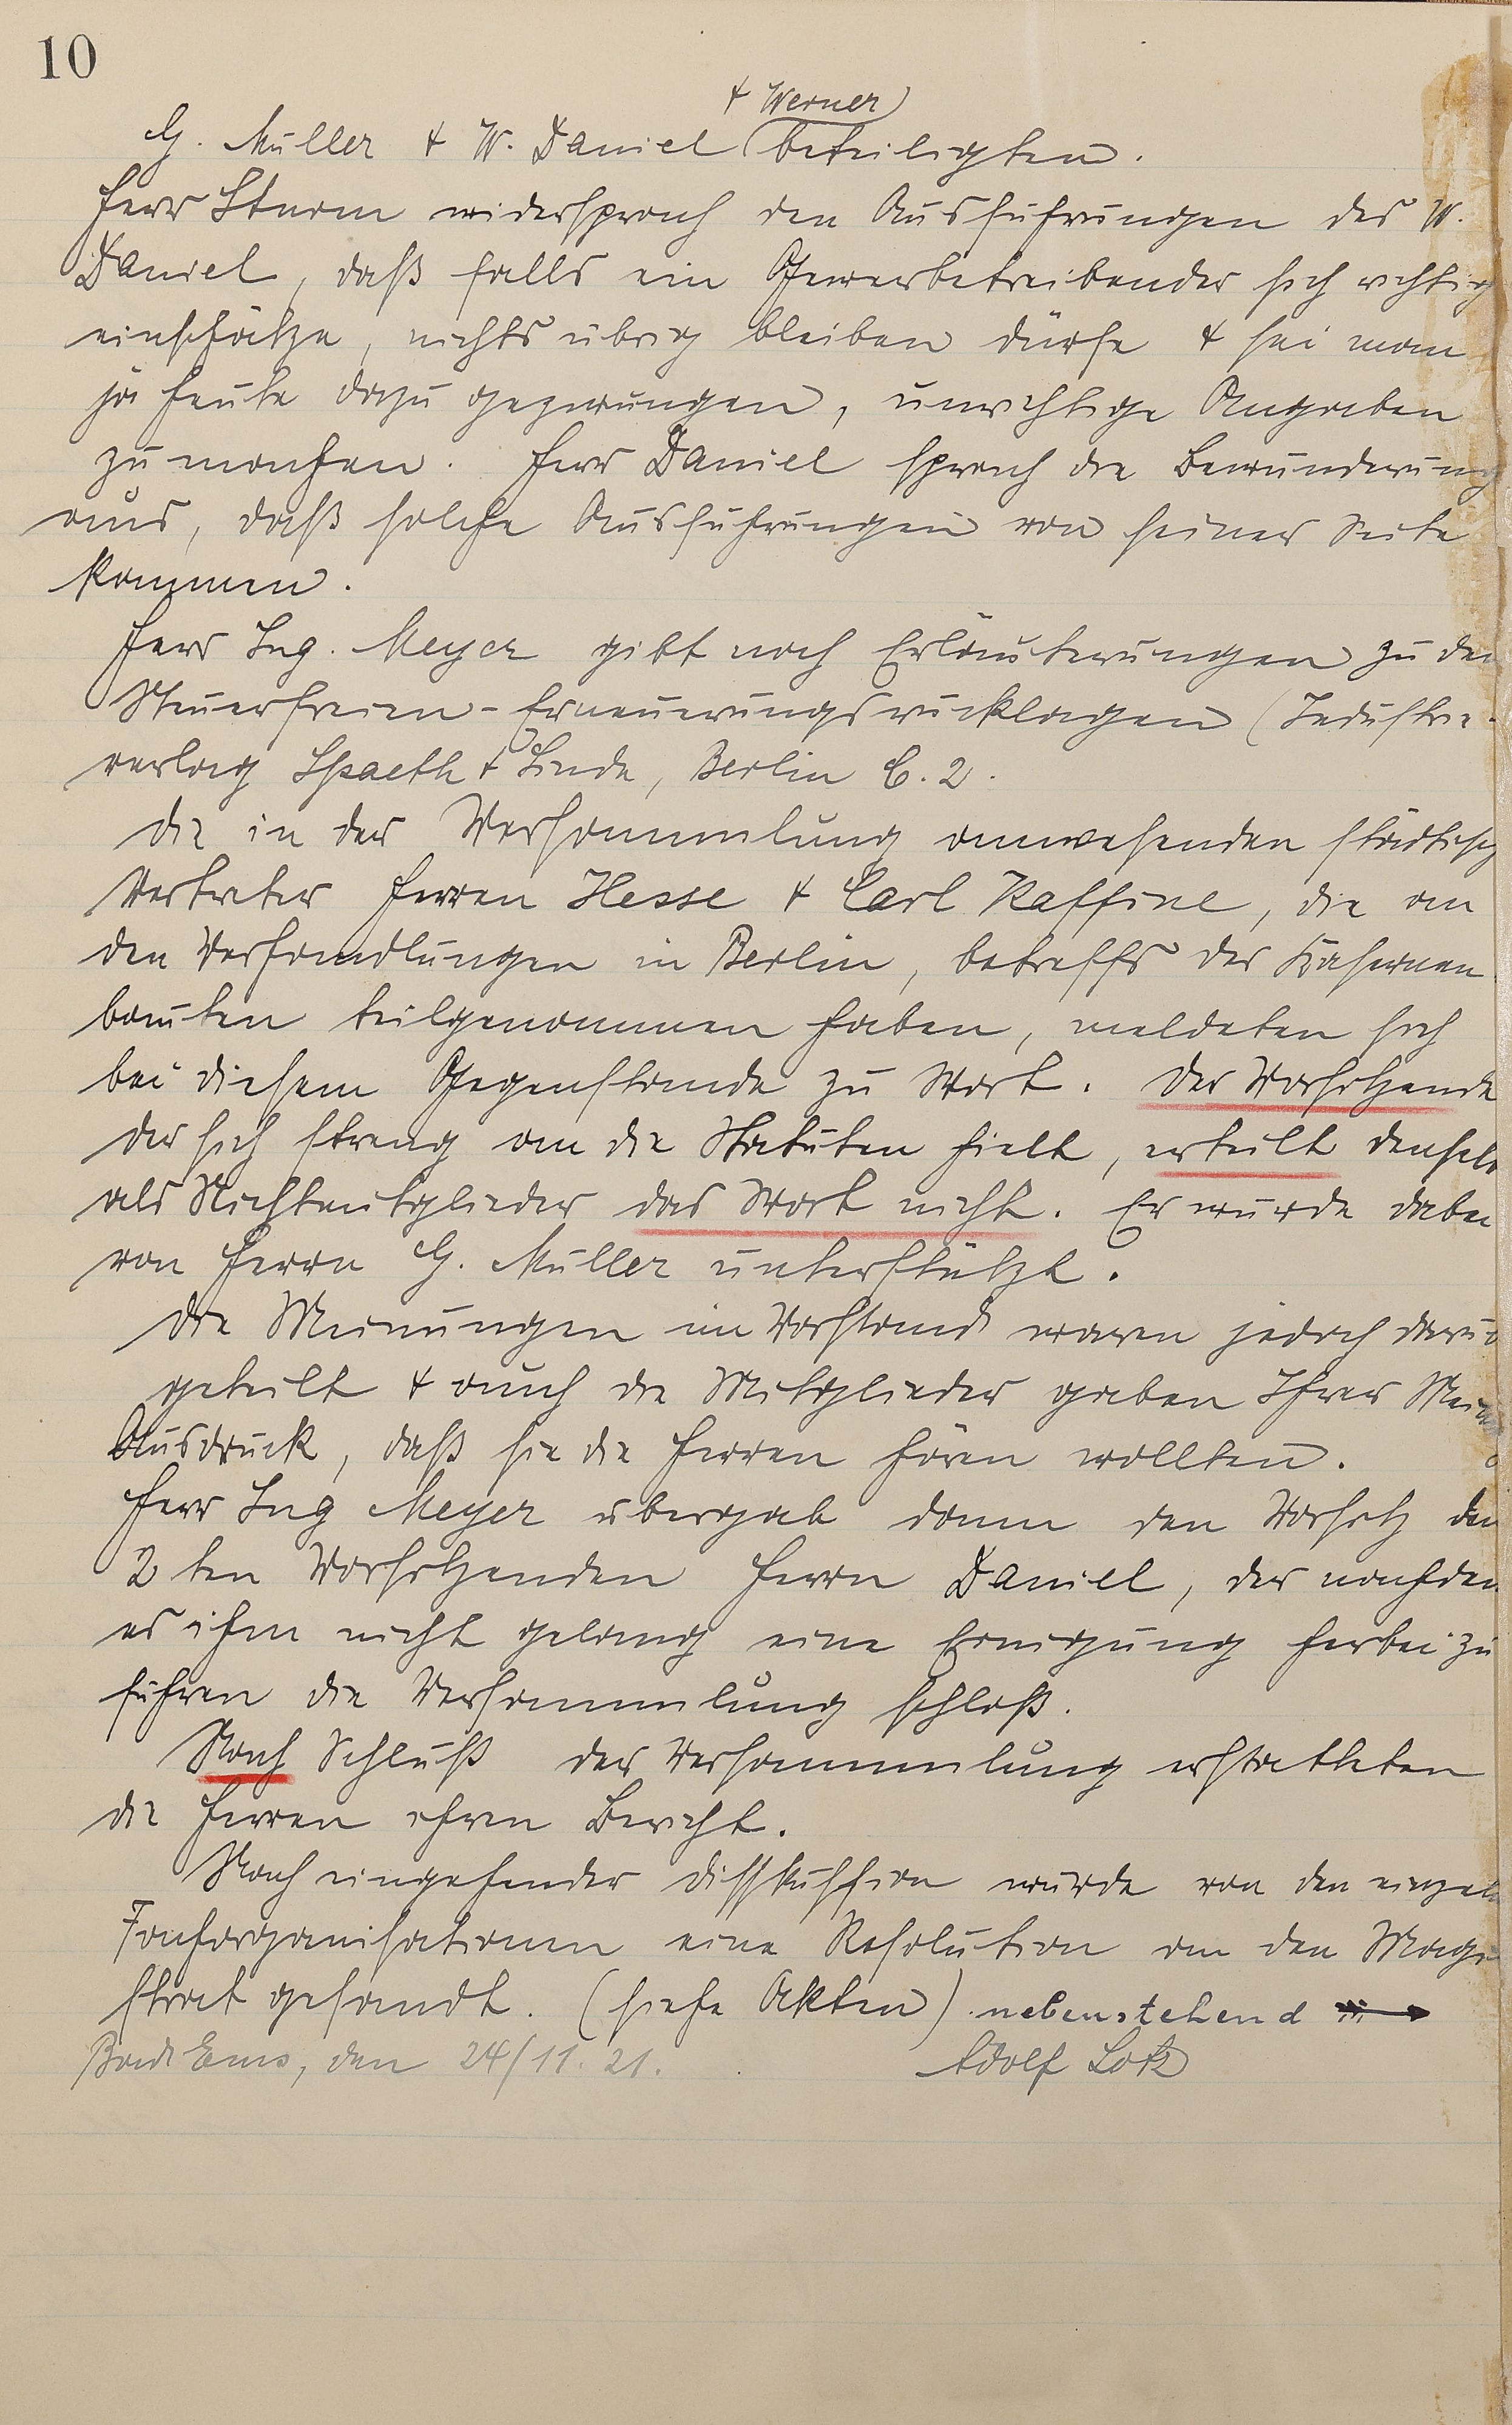 10
+ Werner
G. Müller + W. Daniel beteiligten.
Herr Sturm widersprach den Ausführungen des W.
Daniel, daß falls ein Gewerbetreibender sich richtig
einschätze, nichts übrig bleiben dürfe + sei man
ja heute dazu gezwungen, unrichtige Angaben
zu machen. Herr Daniel sprach die Bewunderung
aus, daß solche Ausführungen von seiner Seite
kommen.
Herr Ing. Meyer gibt noch Erläuterungen zu den
Steuerfreien-Erneuerungsrücklagen (Industrie-
verlag Spaeth + Linde, Berlin C. 2.
Die in der Versammlung anwesenden städtisch
Vertreter Herren Hesse + Carl Kaffine, die an
den Verhandlungen in Berlin, betreffs der Kasernen
bauten teilgenommen haben, meldeten sich
bei diesem Gegenstande zu Wort. Der Vorsitzende
der sich streng an die Statuten hielt, erteilt denselb
als Nichtmitglieder das Wort nicht. Er wurde dabei
von Herrn G. Müller unterstützt.
Die Meinungen im Vorstand waren jedoch darüb
geteilt + auch die Mitglieder gaben Ihrer Mein
Ausdruck, daß sie die Herren hören wollten.
Herr Ing Meyer übergab dann den Vorsitz dem
2 ten Vorsitzenden Herrn Daniel, der nachdem
es ihm nicht gelang eine Einigung herbei zu
führen die Versammlung schloß.
Nach Schluß der Versammlung erstatteten
die Herren ihren Bericht.
Nach eingehender Disskussion wurde von den einzeln
Fachorganisationen eine Resolution an den Magi
strat gesandt. (siehe Akten) nebenstehend →
Bad Ems, den 24/11. 21. Adolf Lotz